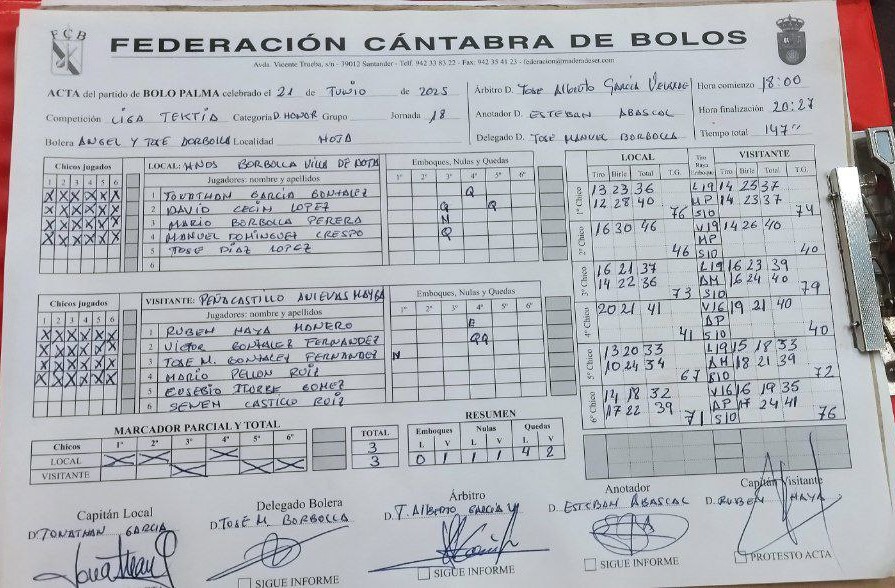 FCB
FEDERACIÓN CÁNTABRA DE BOLOS
Avda. Vicente Trueba, s/n - 39012 Santander - Telf. 942 33 83 22 - Fax: 942 35 41 23 - federacion@maderadeser.com
ACTA del partido de BOLO PALMA celebrado el 21 de JUNIO de 2025
Competición LIGA TEKTIA Categoría D. HONOR Grupo Jornada 18
Bolera ANGEL Y JOSE BORBOLLA Localidad NOJA
Árbitro D. JOSE Alberto GARCÍA VELARDE
Anotador D. ESTEBAN ABASCAL
Delegado D. JOSE MANUEL BORBOLLA
Hora comienzo 18:00
Hora finalización 20:27
Tiempo total 147"
Chicos jugados
1 2 3 4 5 6
X X X X X X
X X X X X X
X X X X X X
X X X X X X
LOCAL: HNOS BORBOLLA VILLA DE NOJA
Jugadores: nombre y apellidos
1 JONATHAN GARCÍA GONZALEZ
2 DAVID CECIN LOPEZ
3 MARIO BORBOLLA PERERA
4 MANUEL DOMINGUEZ CRESPO
5 JOSE DÍAZ LOPEZ
6
Emboques, Nulas y Quedas
1º 2º 3º 4º 5º 6º
Q
Q Q
N
Q
Chicos jugados
1 2 3 4 5 6
X X X X X X
X X X X X X
X X X X X X
X X X X X X
VISITANTE: PEÑACASTILLO ANIEVAS MAYBA
Jugadores: nombre y apellidos
1 RUBEN HAYA
2 VICTOR GONZALEZ FERNANDEZ
3 JOSE M. GONZALEZ FERNANDEZ
4 MARIO PELLON RUIZ
5 EUSEBIO ITURBE GOMEZ
6 SENEN CASTILLO RUIZ
Emboques, Nulas y Quedas
1º 2º 3º 4º 5º 6º
E
QQ
N
LOCAL
Tiro Birle Total T.G.
Tiro Raya Emboque
VISITANTE
Tiro Birle Total T.G.
1º Chico
13 23 36 L19 14 23 37
12 28 40 MP 14 23 37
76 S10 74
2º Chico
16 30 46 V19 14 26 40
MP
46 S10 40
3º Chico
16 21 37 L19 16 23 39
14 22 36 AM 16 24 40
73 S10 79
4º Chico
20 21 41 V16 19 21 40
AP
41 S10 40
5º Chico
13 20 33 L19 15 18 33
10 24 34 AM 18 21 39
67 S10 72
6º Chico
14 18 32 V16 16 19 35
17 22 39 AP 17 24 41
71 S10 76
MARCADOR PARCIAL Y TOTAL
Chicos 1º 2º 3º 4º 5º 6º
LOCAL X X X
VISITANTE X X X
TOTAL
3
3
RESUMEN
Emboques Nulas Quedas
L V L V L V
0 1 1 1 4 2
Capitán Local
D. JONATHAN GARCIA
Delegado Bolera
D. JOSÉ M. BORBOLLA
Árbitro
D. J. ALBERTO GARCIA V
Anotador
D. ESTEBAN ABASCAL
Capitán Visitante
D. RUBEN HAYA
SIGUE INFORME
SIGUE INFORME
SIGUE INFORME
PROTESTO ACTA